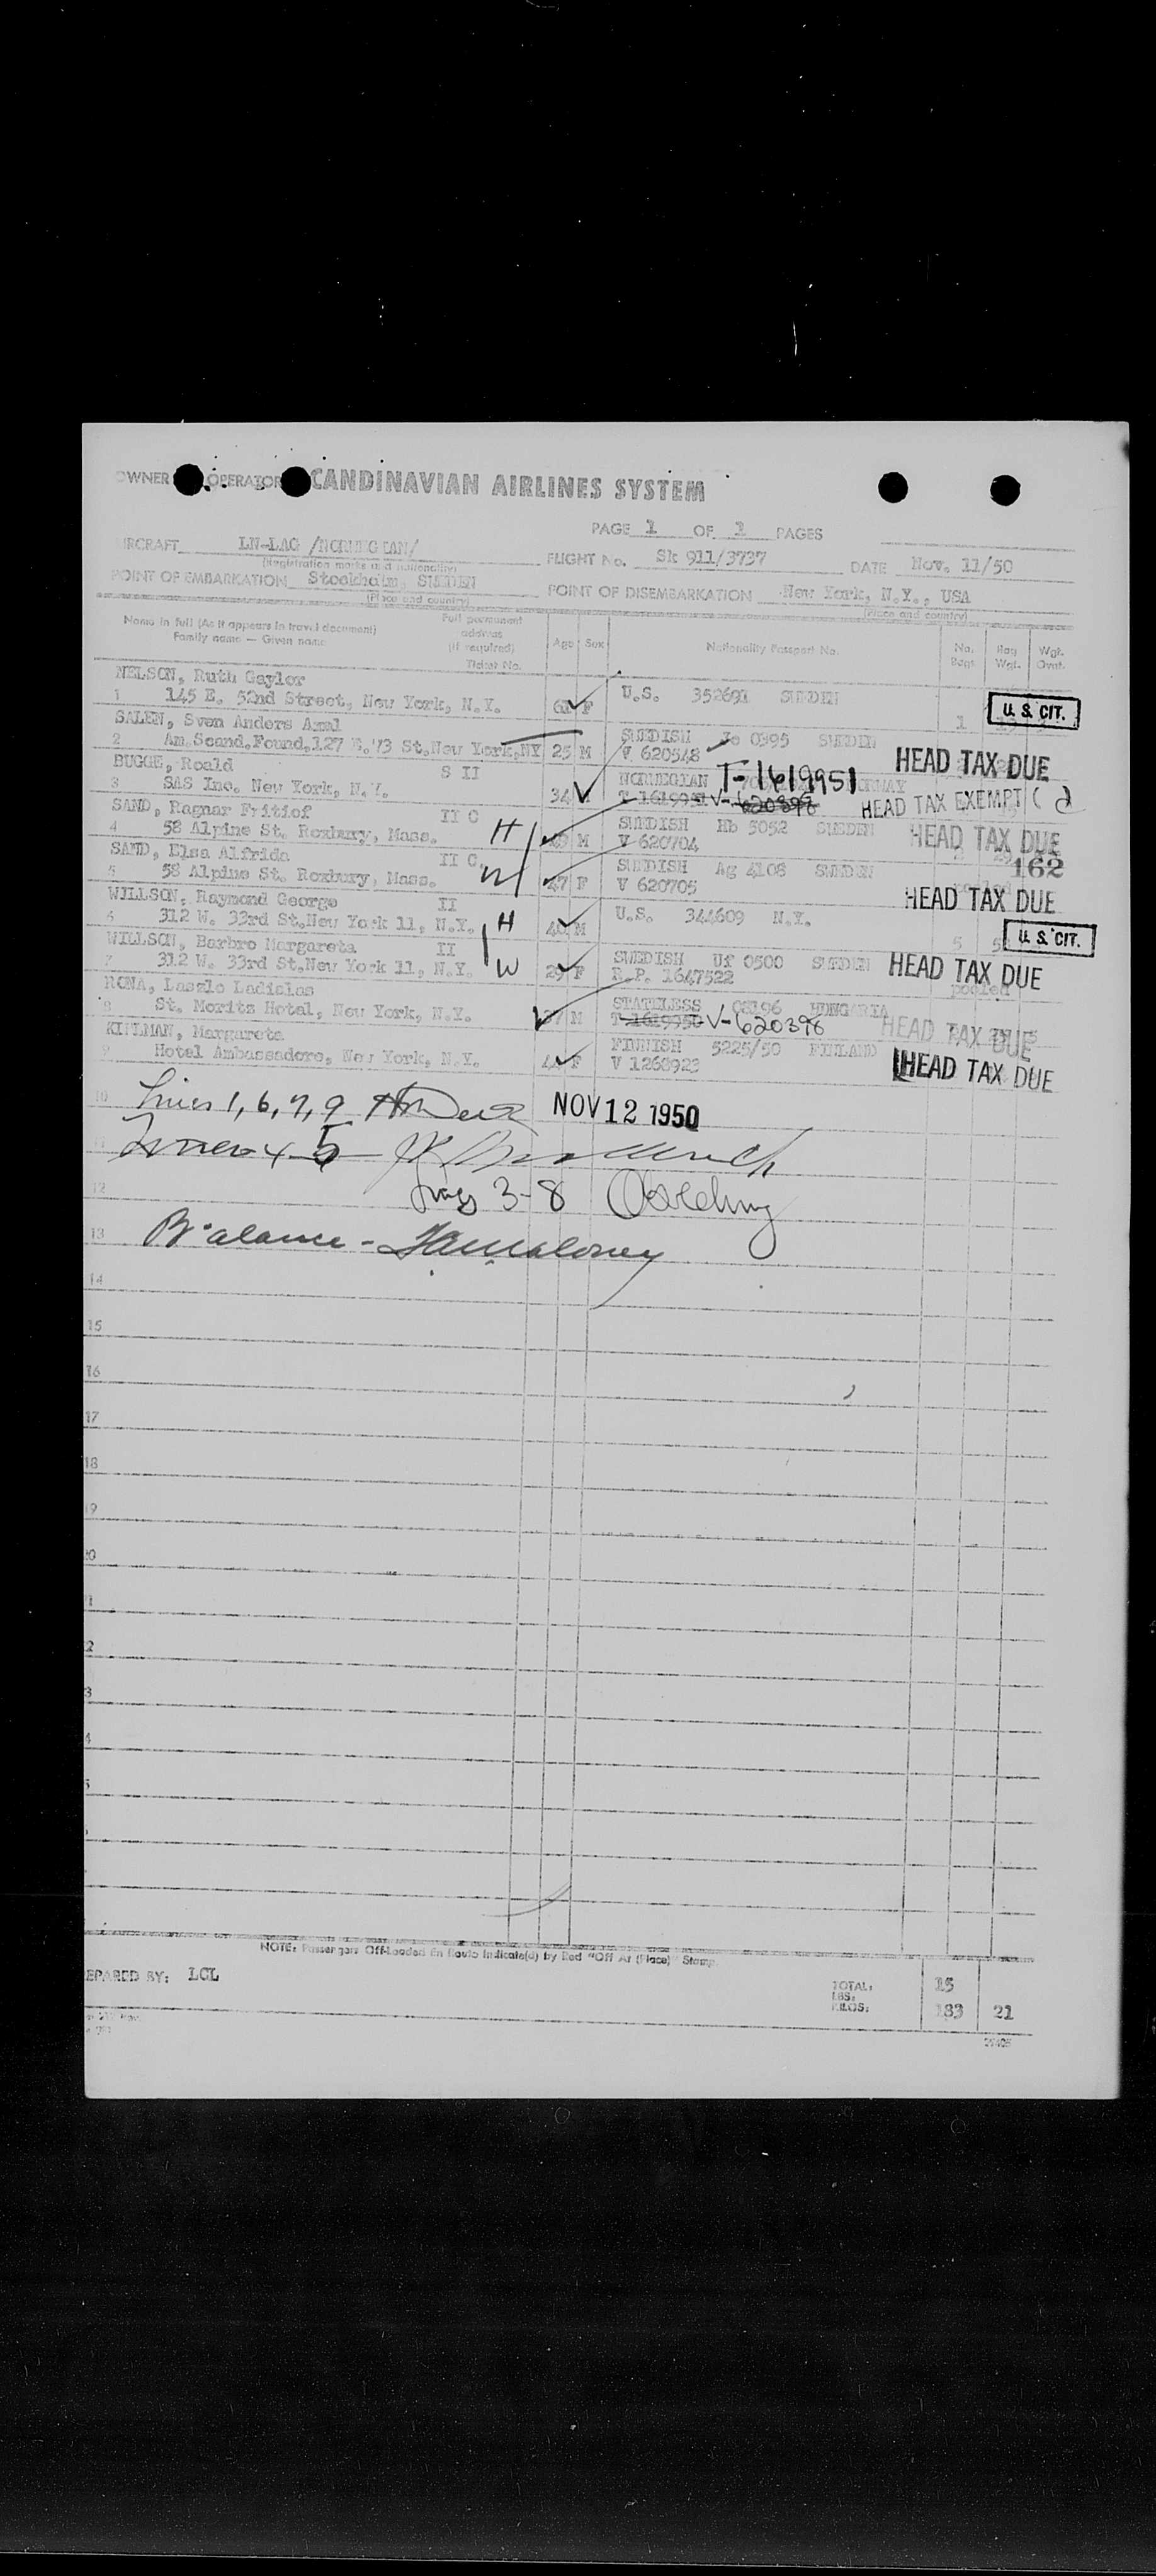 OWNER OPERATOR SCANDINAVIAN AIRLINES SYSTEM
PAGE 1 OF 1 PAGES
AIRCRAFT LN-LAG /NORWEGIAN/ FLIGHT No. Sk 911/3737 DATE Nov. 11/50
(Registration marks and nationality)
POINT OF EMBARKATION Stockholm, SWEDEN POINT OF DISEMBARKATION New York, N.Y., USA
(Place and country) (Place and country)
Name in full (As it appears in travel document) Full permanent address (if required) Age Sex Nationality Passport No. No. Bags Bag Wgt. Wgt. Ovnt.
Family name — Given name Ticket No.
NELSON, Ruth Gaylor
1 145 E. 52nd Street, New York, N.Y. F U.S. 352691 SWEDEN U. S. CIT.
SALEN, Sven Anders Axel 1
2 Am.Scand.Found.127 E.73 St.New York,NY 25 M SWEDISH Jo 0395 SWEDEN V 620548 HEAD TAX DUE
BUGGE, Roald S II
3 SAS Inc. New York, N.Y. 34 NORWEGIAN T-1619951 T 1619951 V-620398 HEAD TAX EXEMPT ( 2
SAND, Ragnar Fritiof II C
4 58 Alpine St. Roxbury, Mass. H M SWEDISH Hb 5052 SWEDEN V 620704 HEAD TAX DUE
162
SAND, Elsa Alfrida II C
5 58 Alpine St. Roxbury, Mass. W 47 F SWEDISH Ag 4108 SWEDEN V 620705 HEAD TAX DUE
WILLSON, Raymond George II
6 312 W. 33rd St.New York 11, N.Y. H 40 M U.S. 344609 N.Y. 5 U. S. CIT.
WILLSON, Barbro Margareta II
7 312 W. 33rd St.New York 11, N.Y. W 29 F SWEDISH Uf 0500 SWEDEN R.P. 1647522 HEAD TAX DUE
pooled
RONA, Laszlo Ladislas
8 St. Moritz Hotel, New York, N.Y. M STATELESS 08196 HUNGARIA T 1619950 V-620398 HEAD TAX DUE
KIHLMAN, Margareta
9 Hotel Ambassadore, New York, N.Y. 44 F FINNISH 5225/50 FINLAND V 1268923 HEAD TAX DUE
10 Lines 1, 6, 7, 9 NOV 12 1950
11 Lines 4-5
12 Lines 3-8
13 Balance - Maloney
14
15
16
17
18
19
20
1
2
3
4
5
NOTE: Passengers Off-Loaded En Route Indicate(d) by Red "Off At (Place)" Stamp.
PREPARED BY: LCL
TOTAL: 15
LBS:
KILOS: 183 21